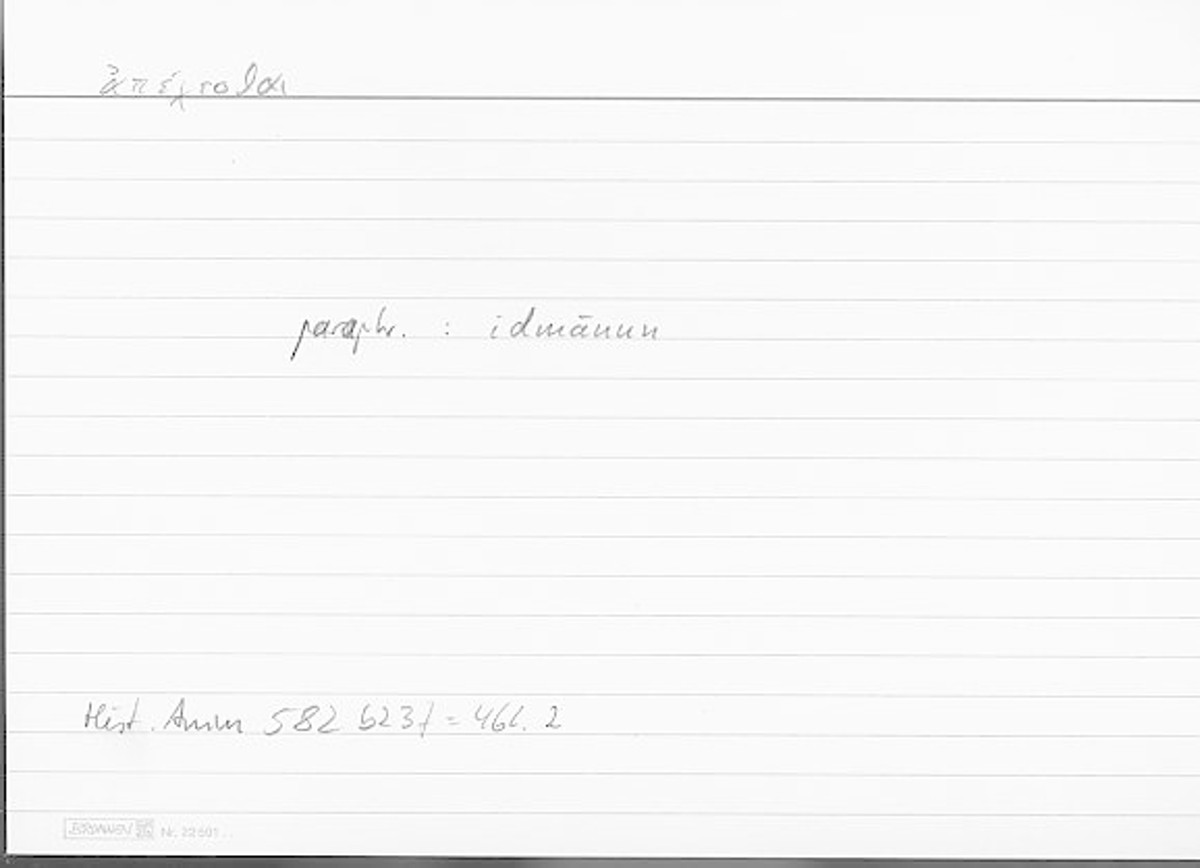 ἀπέχεσθαι
paraphr. : idmānun
Hist. Anim 582 b23f = 466. 2
BRUNNEN Nr. 22 601